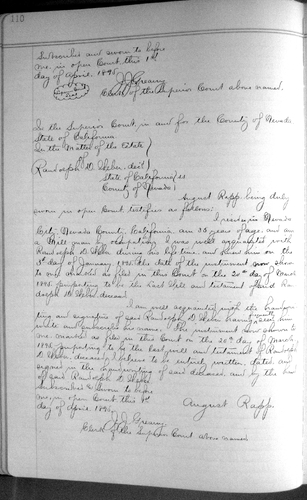 110
Subscribed and sworn to before
me, in open Court this 1st
day of April 1895
J. J. Greany
Clerk of the Superior Court above named.
In the Superior Court, in and for the County of Nevada
State of California
In the Matter of the Estate
of
Randolph D. decd
State of California } ss
County of Nevada
August Rapp being duly
sworn in open Court testifies as follows:
I reside in Nevada
City, Nevada County, California, am 55 years of age, and am
a by occupation; I was well acquainted with
Randolph D. during his life time and knew him on the
day of January 1895 the date of the instrument now shown
to me marked as filed in this Court on the 20th day of March
1895 purporting to be the Last Will and testament of said Ran
dolph D. deceased.
I am well acquainted with the handwri
ting and signature of said Randolph D. having seen him
write and subscribe his name. The instrument now shown to
me marked as filed in this Court on the 20th day of March
1895 purporting to be the last will and testament of Randolph
D. deceased, I believe to be entirely written, dated and
signed in the handwriting of said deceased, and by the hand
of said Randolph D.
Subscribed & Sworn to before
me, in open Court this 1st
day of April 1895
August Rapp
J. J. Greany
Clerk of the Superior Court above named